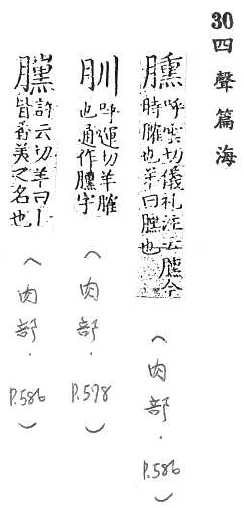 30 四聲篇海
臐 呼雲切儀礼注云臐今
時臛也羊曰臐也
（肉部．P.586）
呼運切羊臛
也通作臐字
（肉部．P.578）
許云切羊曰丨
皆香美之名也
（肉部．P.586）